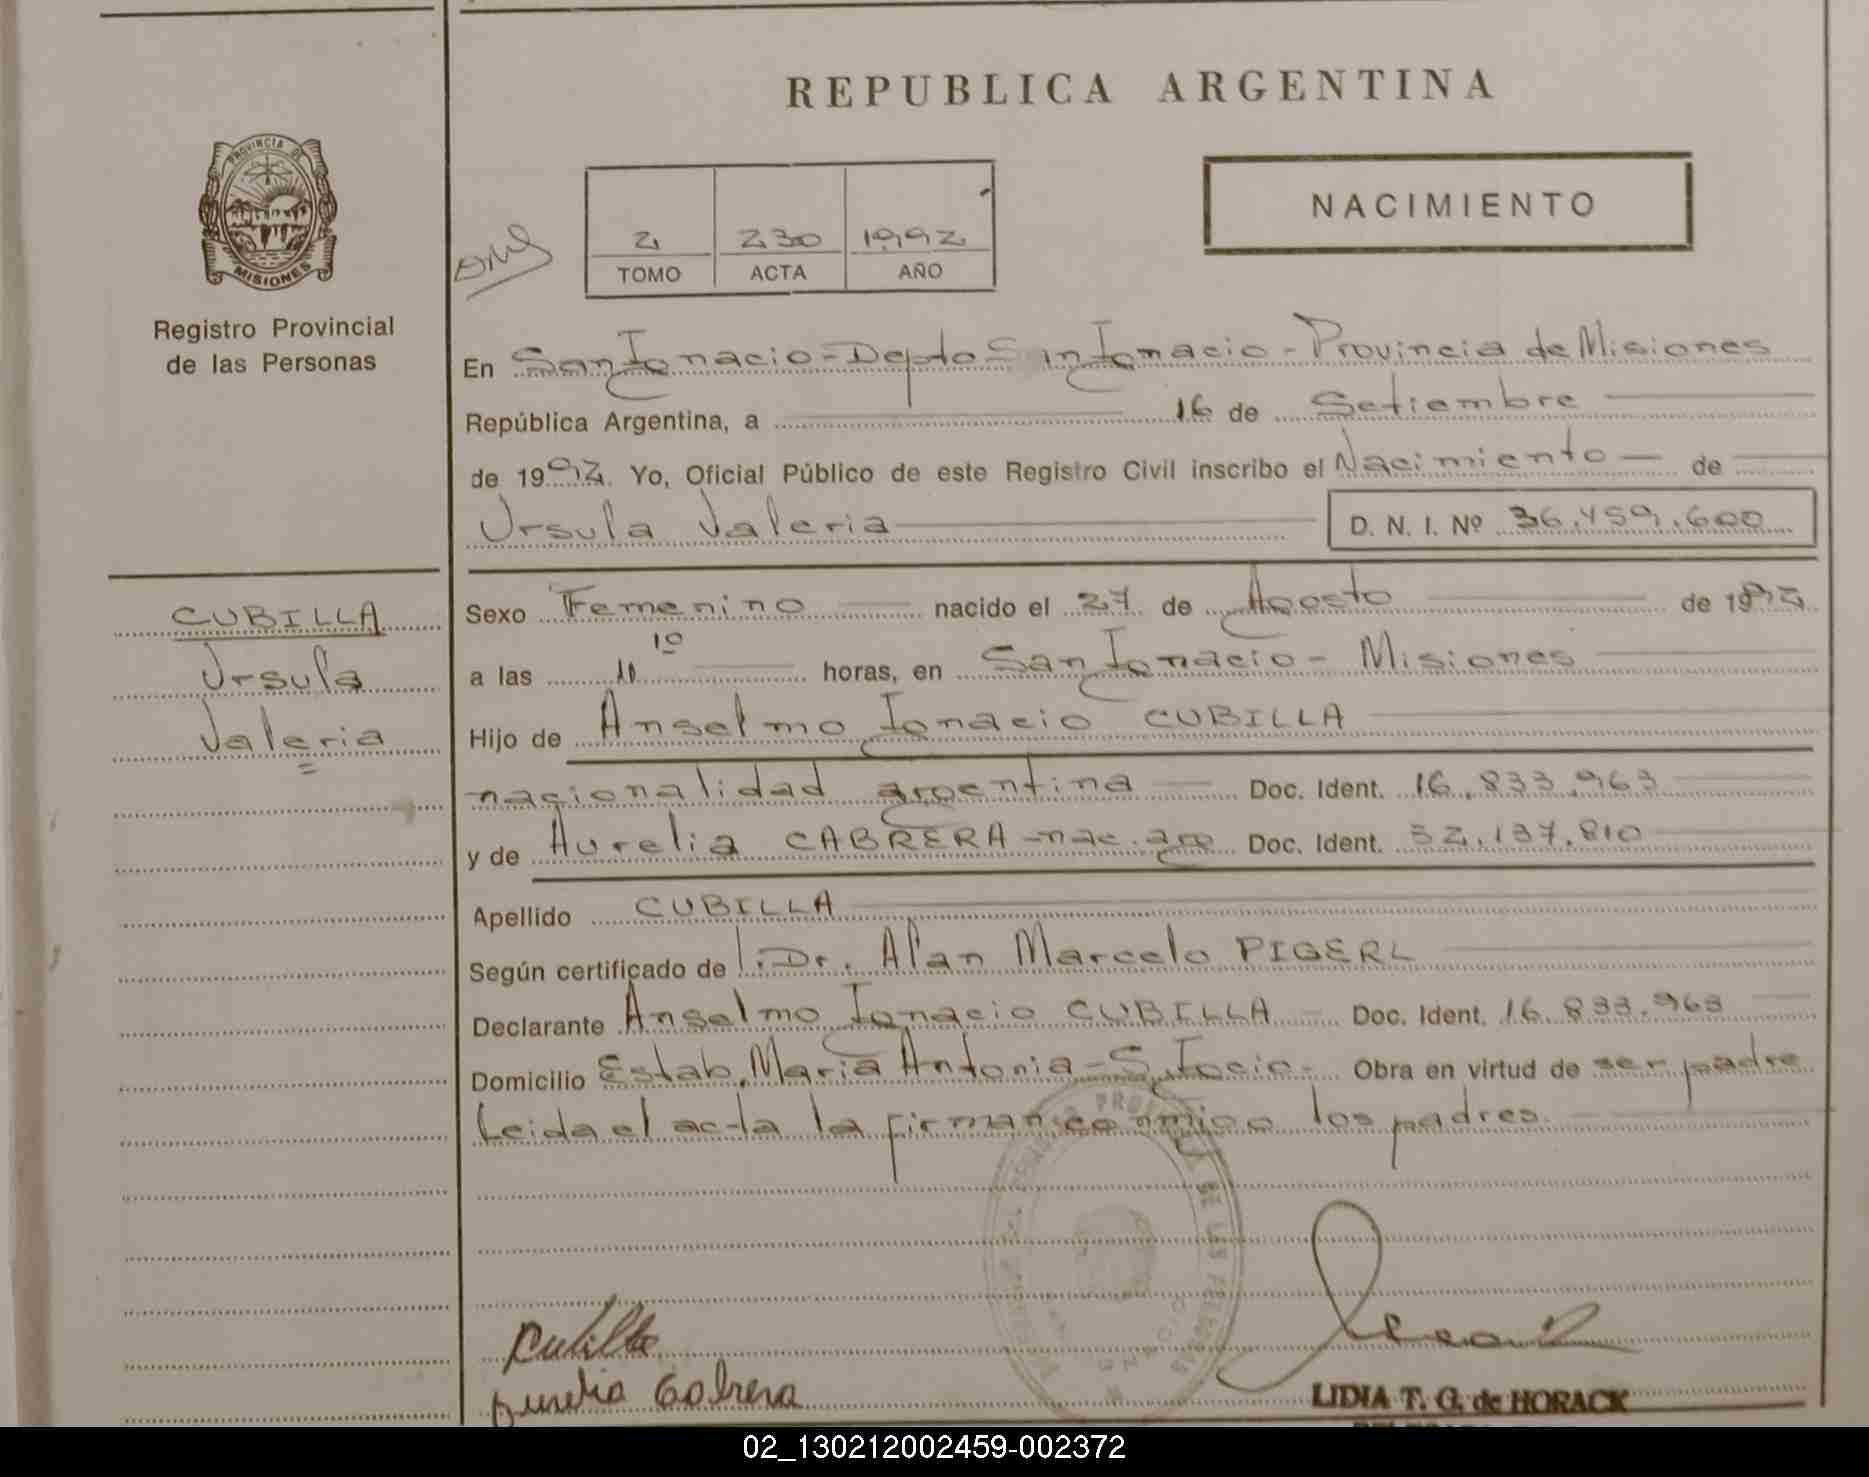 REPUBLICA ARGENTINA
PROVINCIA DE
MISIONES
Registro Provincial
de las Personas
NACIMIENTO
2 230 1992
TOMO ACTA AÑO
En San Ignacio - Depto San Ignacio - Provincia de Misiones
República Argentina, a 16 de Setiembre
de 1992. Yo, Oficial Público de este Registro Civil inscribo el Nacimiento de
Ursula Valeria D. N. I. Nº 36.459.600
CUBILLA
Ursula
Valeria
Sexo Femenino nacido el 27 de Agosto de 1992
a las 11 10 horas, en San Ignacio - Misiones
Hijo de Anselmo Ignacio CUBILLA
nacionalidad argentina Doc. Ident. 16.833.963
y de Aurelia CABRERA - nac. arg Doc. Ident. 32.137.810
Apellido CUBILLA
Según certificado de l. Dr. Alan Marcelo PIGERL
Declarante Anselmo Ignacio CUBILLA Doc. Ident. 16.833.963
Domicilio Estab. Maria Antonia - S. Igcio - Obra en virtud de ser padre
Leida el acta la firman conmigo los padres.
Cubilla
Aurelia Cabrera
LIDIA T. G. de HORACK
02_130212002459-002372